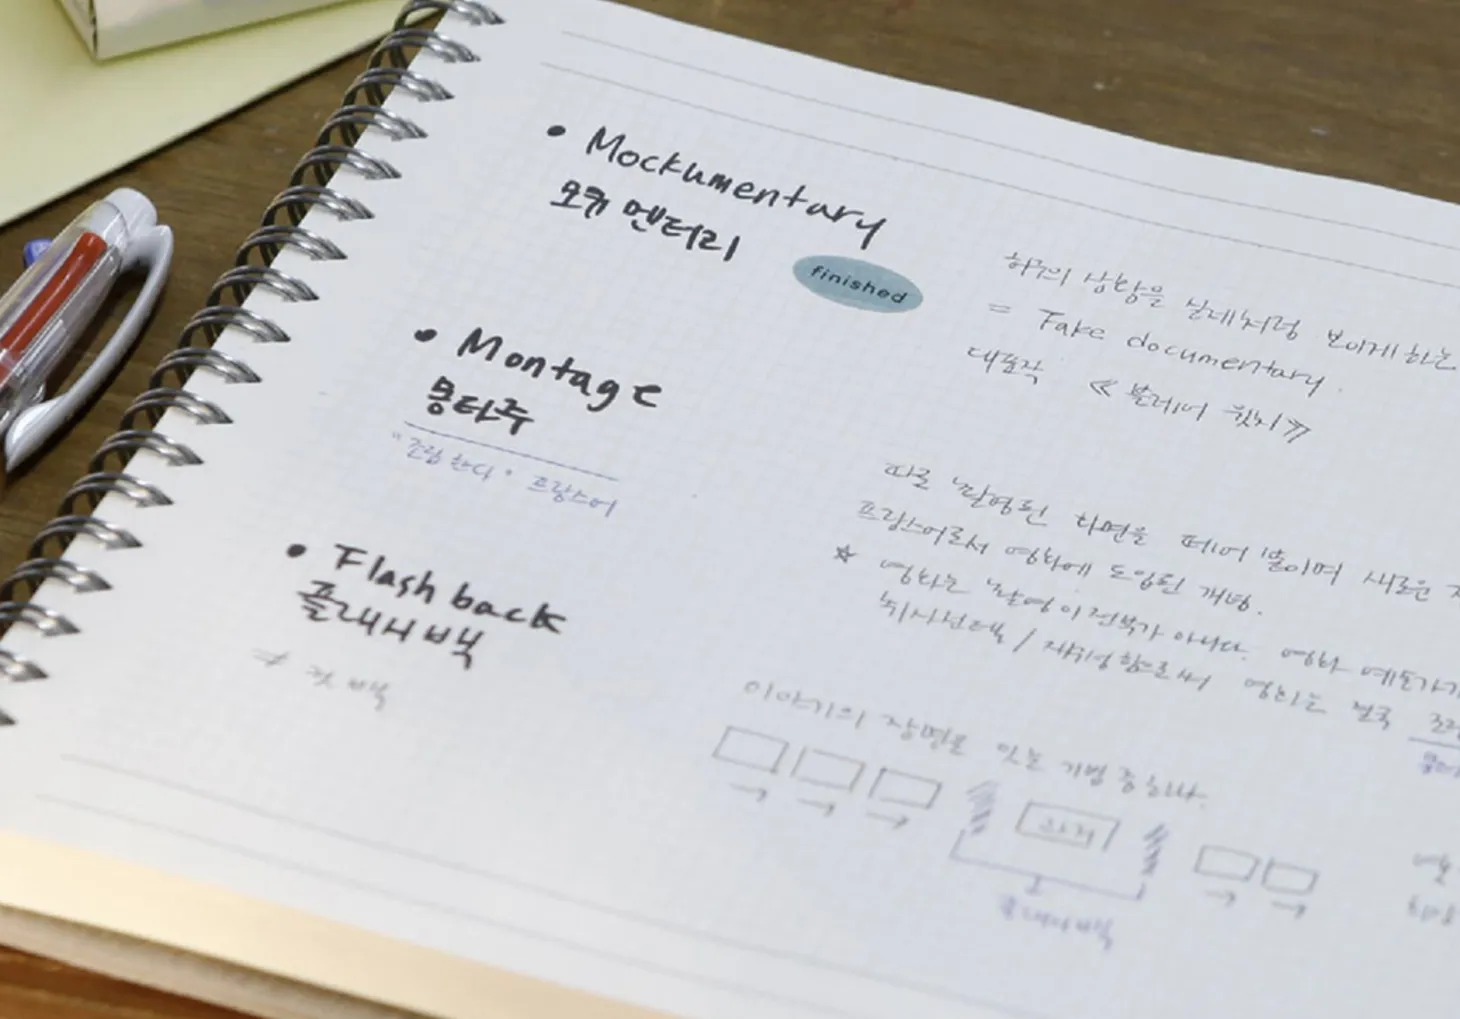 • Mockumentary
모큐멘터리
finished
허구의 상황을 실제처럼 보이게 하는
= Fake documentary.
대표작 《블레어 윗치》
• Montage
몽타주
"조립한다" 프랑스어
따로 촬영된 화면을 떼어 붙이며 새로운
프랑스어로서 영화에 도입된 개념.
☆ 영화는 촬영이 전부가 아니다. 영화 예술가가
취사선택 / 재구성함으로써 영화는 결국
• Flash back
플래시백
≠ 컷 백
이야기의 장면을 잇는 기법 중 하나.
과거
플래시백